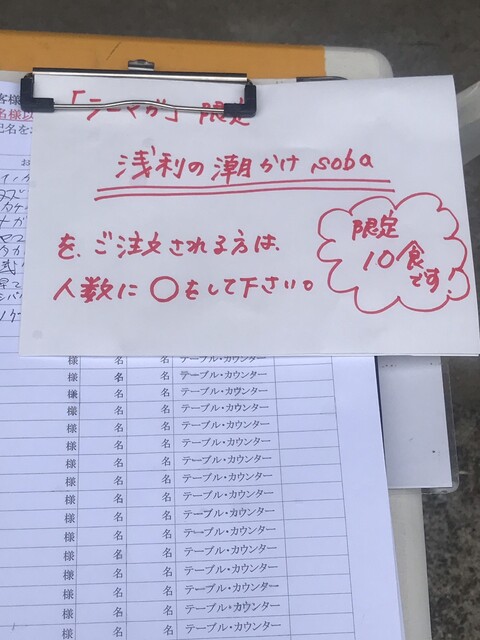 「ラーマガ」限定
浅利の潮かけsoba
を、ご注文される方は、
人数に○をして下さい。
限定
10食
です!
客様
名様以
記名を
お
様 名 名 テーブル・カウンター
様 名 名 テーブル・カウンター
様 名 名 テーブル・カウンター
様 名 名 テーブル・カウンター
様 名 名 テーブル・カウンター
様 名 名 テーブル・カウンター
様 名 名 テーブル・カウンター
様 名 名 テーブル・カウンター
様 名 名 テーブル・カウンター
様 名 名 テーブル・カウンター
様 名 名 テーブル・カウンター
様 名 名 テーブル・カウンター
様 名 名 テーブル・カウンター
様 名 名 テーブル・カウンター
様 名 名 テーブル・カウンター